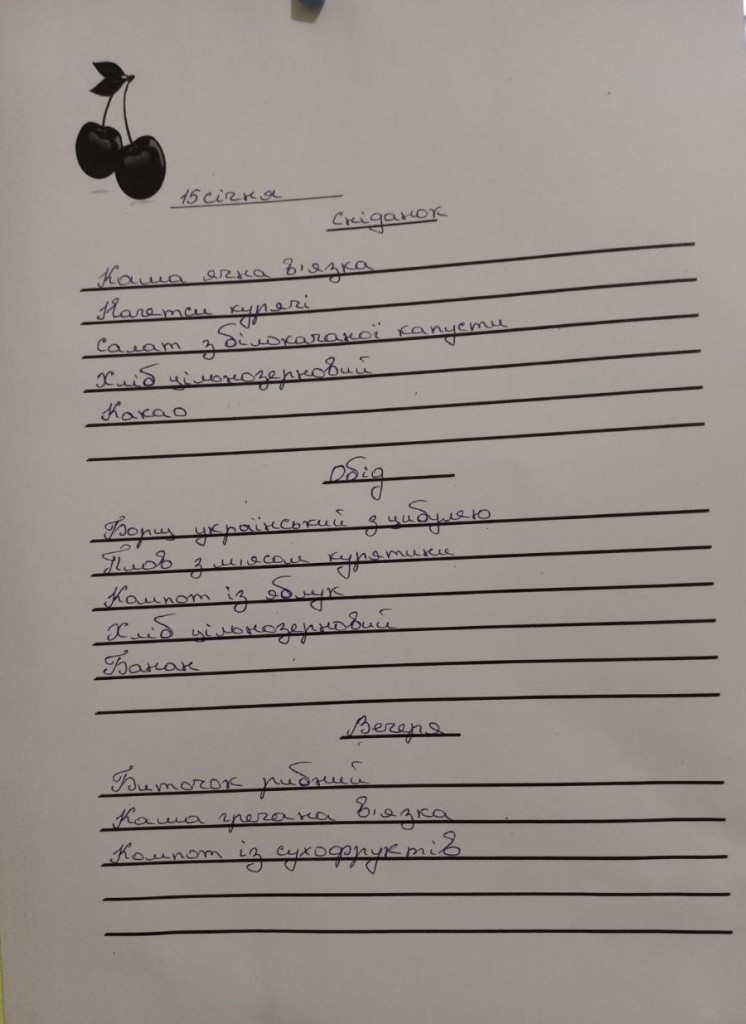 15 січня
Сніданок
Каша ячна в'язка
Нагетси курячі
Салат з білокачаної капусти
Хліб цільнозерновий
Какао
Обід
Борщ український з цибулею
Плов з м'ясом курятини
Компот із яблук
Хліб цільнозерновий
Банан
Вечеря
Биточок рибний
Каша гречана в'язка
Компот із сухофруктів